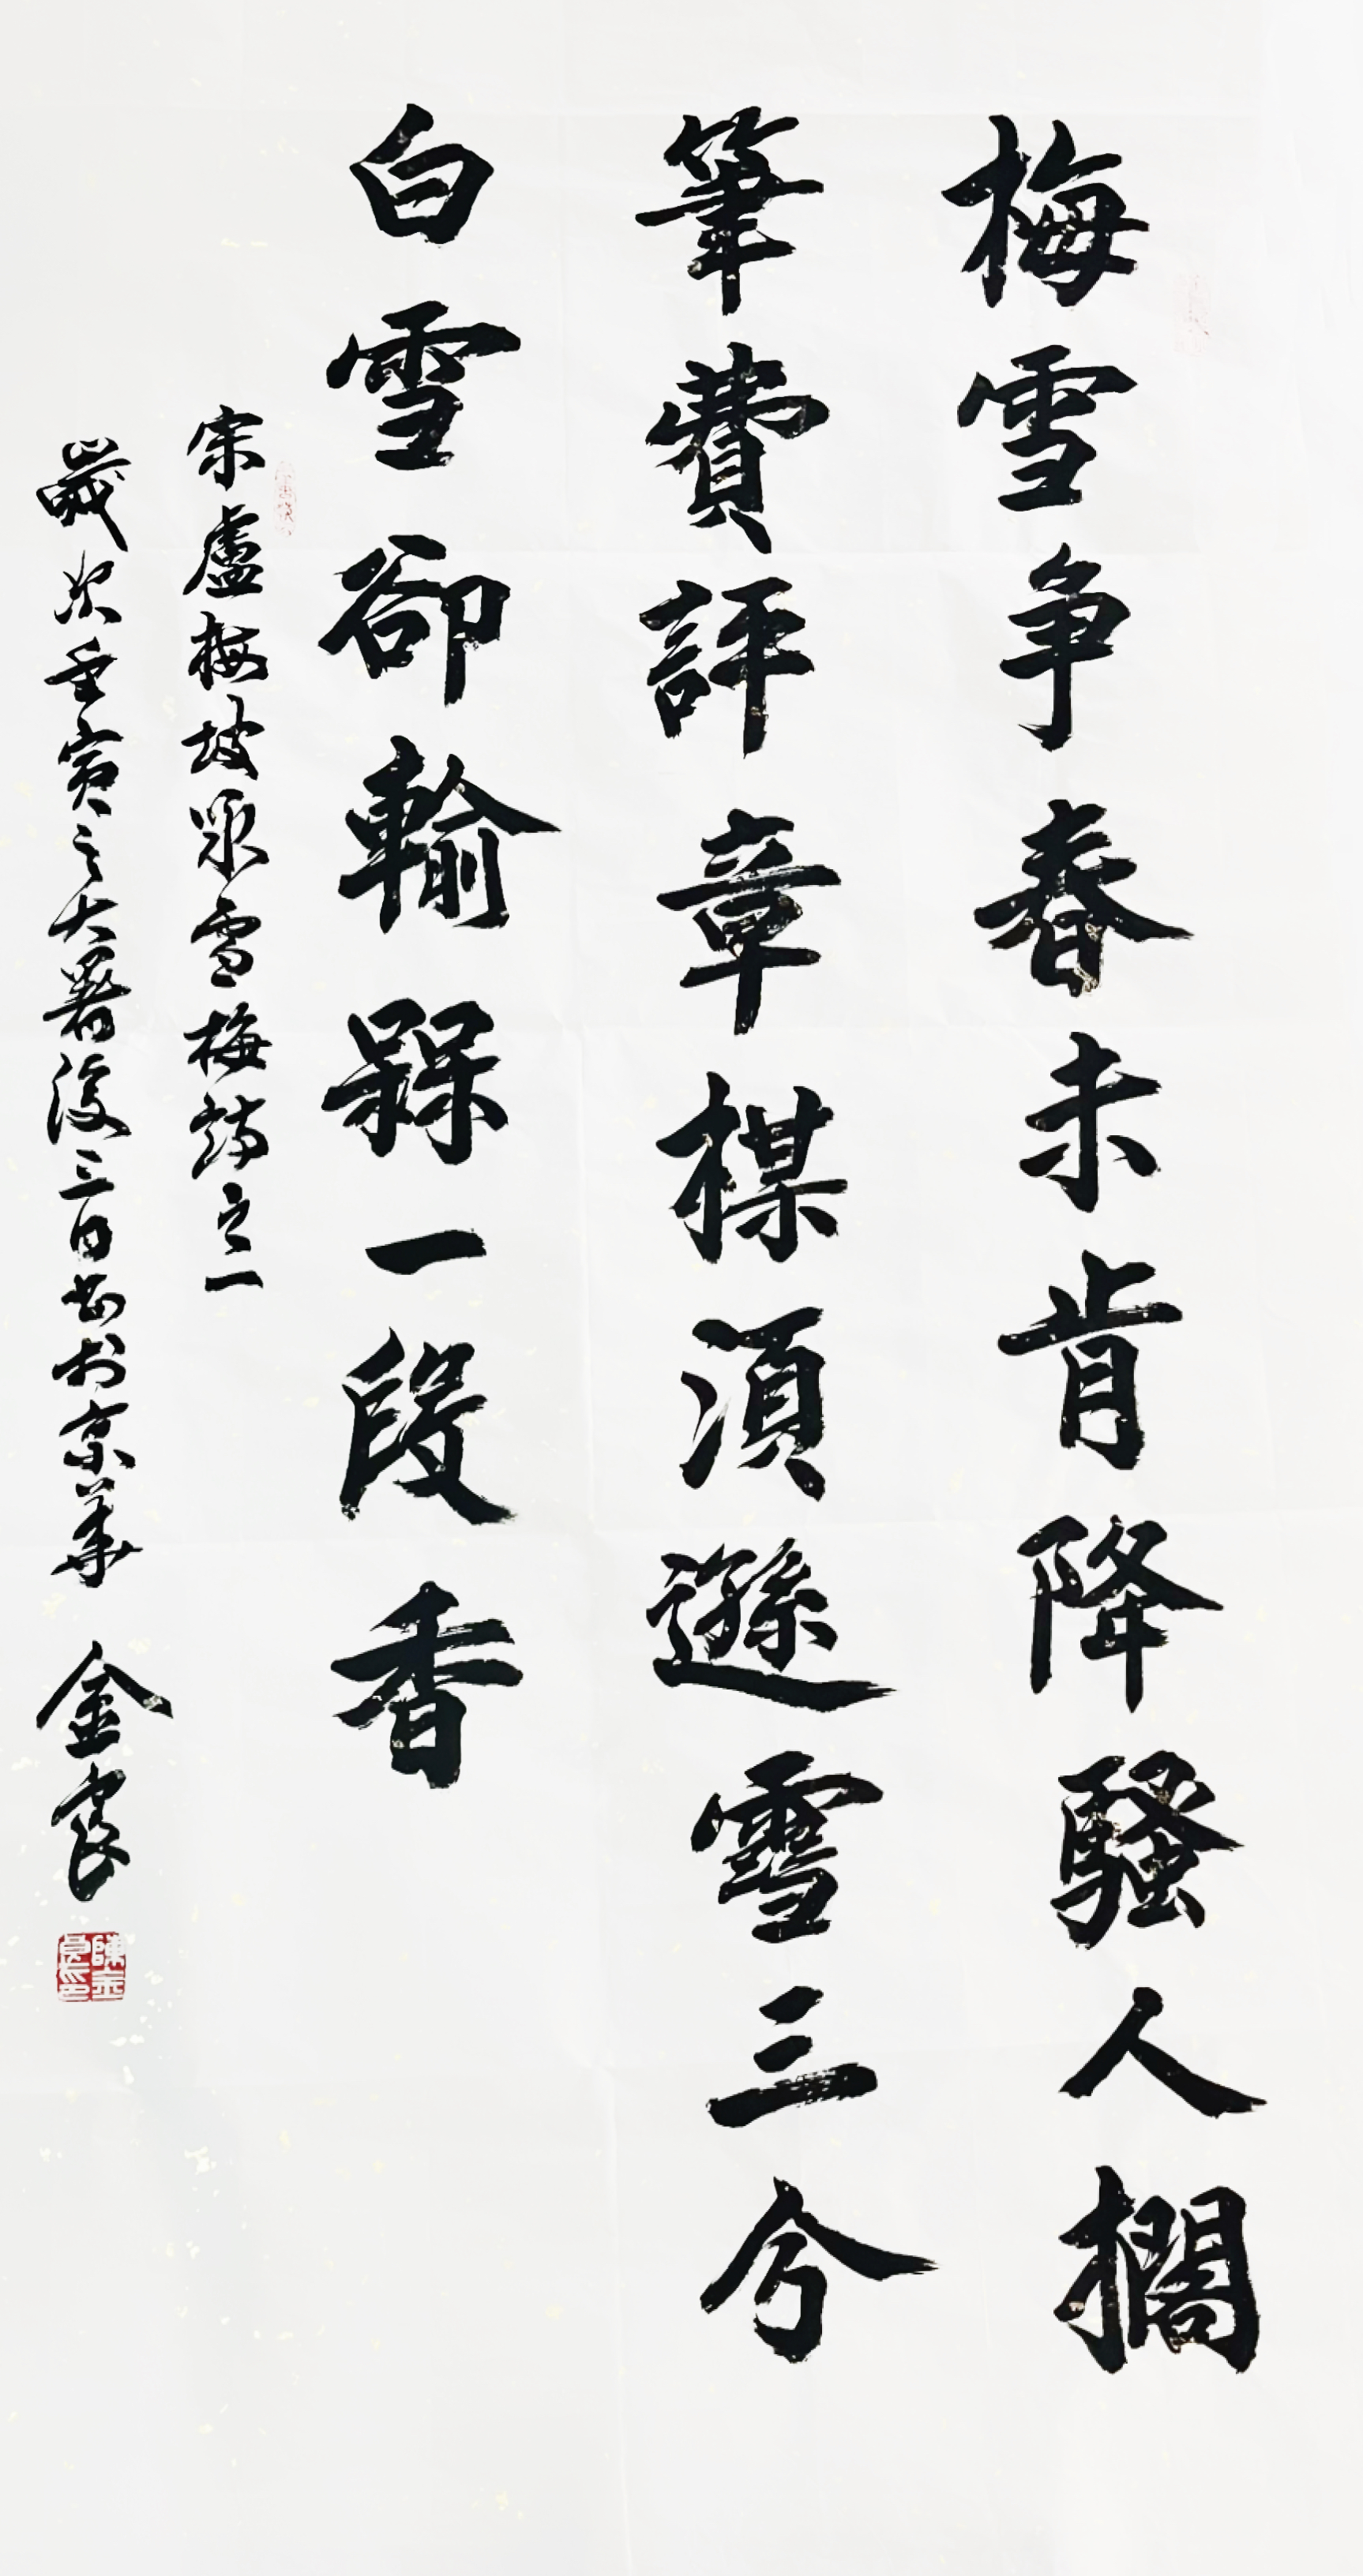 梅雪争春未肯降騷人擱
筆費評章楳須遜雪三分
白雪卻輸槑一段香
宋盧梅坡咏雪梅詩之一
歲次壬寅之大暑後三日書於京華 金良
陳金良印